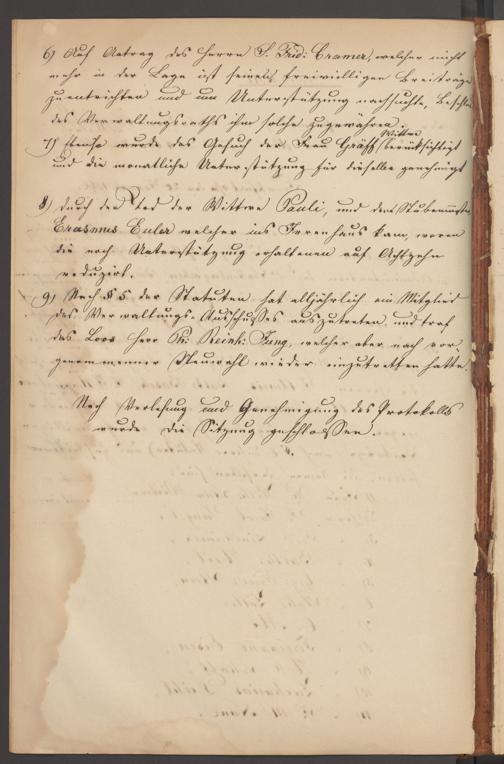 6) Auf Antrag des Herrn S. Frid: Cramer, welcher nicht
mehr in der Lage ist seine freiwilligen Beiträge
zu entrichten und um Unterstützung nachsuchte, Beschloß
des Verwaltungsraths ihm solche zugewähren.
7) Ebenso wurde das Gesuch der Frau Gräff Wittwe berücksichtigt
und die monatliche Unterstützung für dieselbe genehmigt
8) durch den Tod der Wittwe Pauli, und dem
Erasmus Euler welcher ins Irrenhaus kam, waren
die noch Unterstützung erhaltenen auf Achtzehn
reduzirt.
9) Nach § 5 der Statuten hat alljährlich ein Mitglied
des Verwaltungs-Ausschußes auszutreten und traf
das Loos Herr Ph: Reinh: Jung, welcher aber nach vor
genommener Neuwahl wieder einzutretten hatte.
Nach Verlesung und Genehmigung des Protokolls
wurde die Sitzung geschlossen.